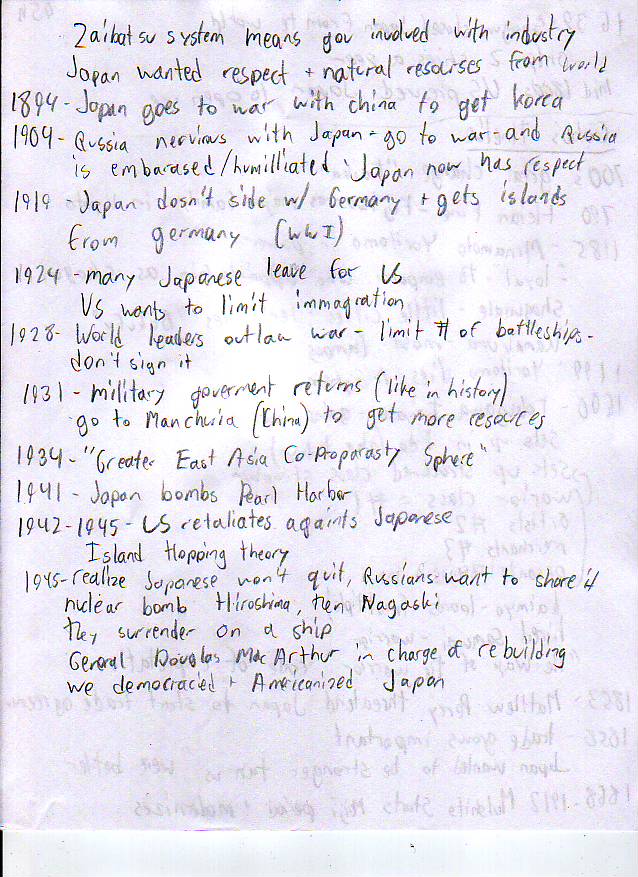 Zaibatsu system means gov involved with industry
Japan wanted respect + natural resourses from world
1894 - Japan goes to war with china to get korea
1904 - Russia nervious with Japan - go to war - and Russia
is embarased/humilliated. Japan now has respect
1919 - Japan dosn't side w/ Germany + gets islands
from germany (WWI)
1924 - many Japanese leave for US
US wants to limit immagration
1928 - World leaders outlaw war - limit # of battleships -
don't sign it
1931 - military goverment returns (like in history)
go to Manchuria (China) to get more resources
1934 - "Greater East Asia Co-Proparasty Sphere"
1941 - Japan bombs Pearl Harbor
1942-1945 - US retaliates againts Japanese
Island Hopping theory
1945 - realize Japanese won't quit, Russians want to share it
nulear bomb Hiroshima, then Nagaski
they surrender on a ship
General Douglas MacArthur in charge of rebuilding
we democracied + Americanized Japan